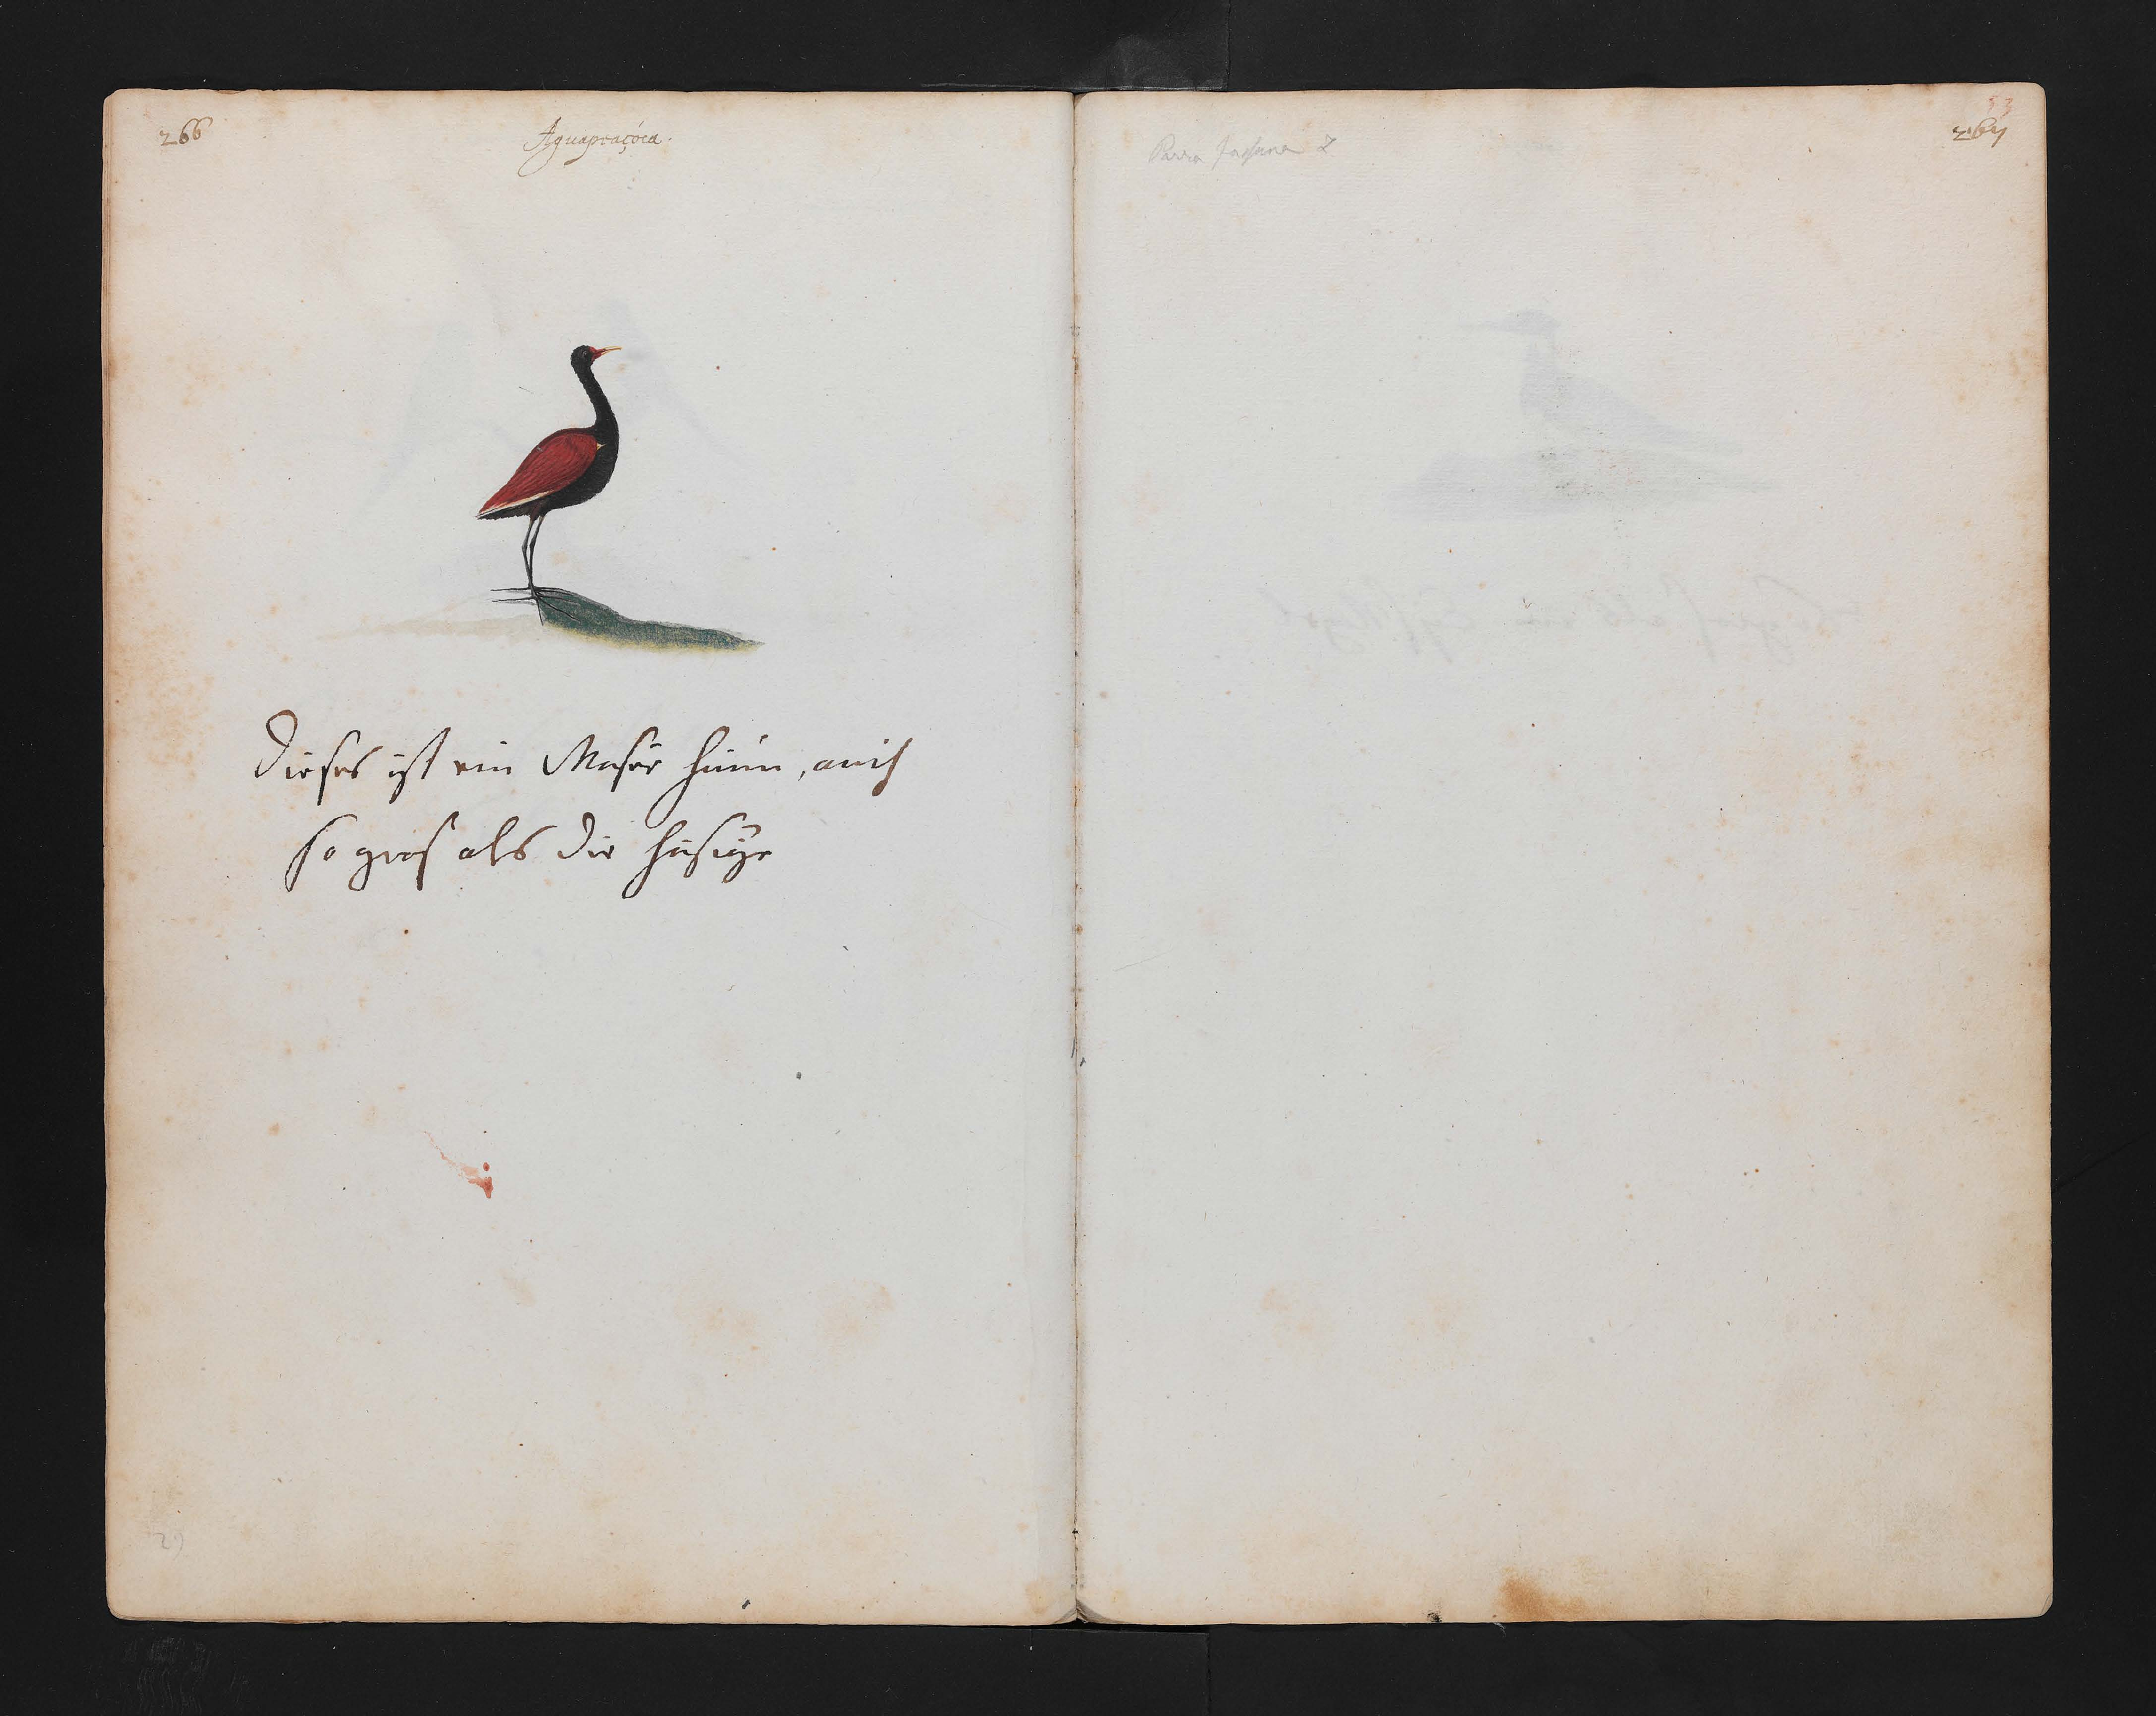 266
Aguapeaçóca.
Dieses ist ein Waßer huún, auch
so gros als die hiesige
29
Parra Jassana L
53
267